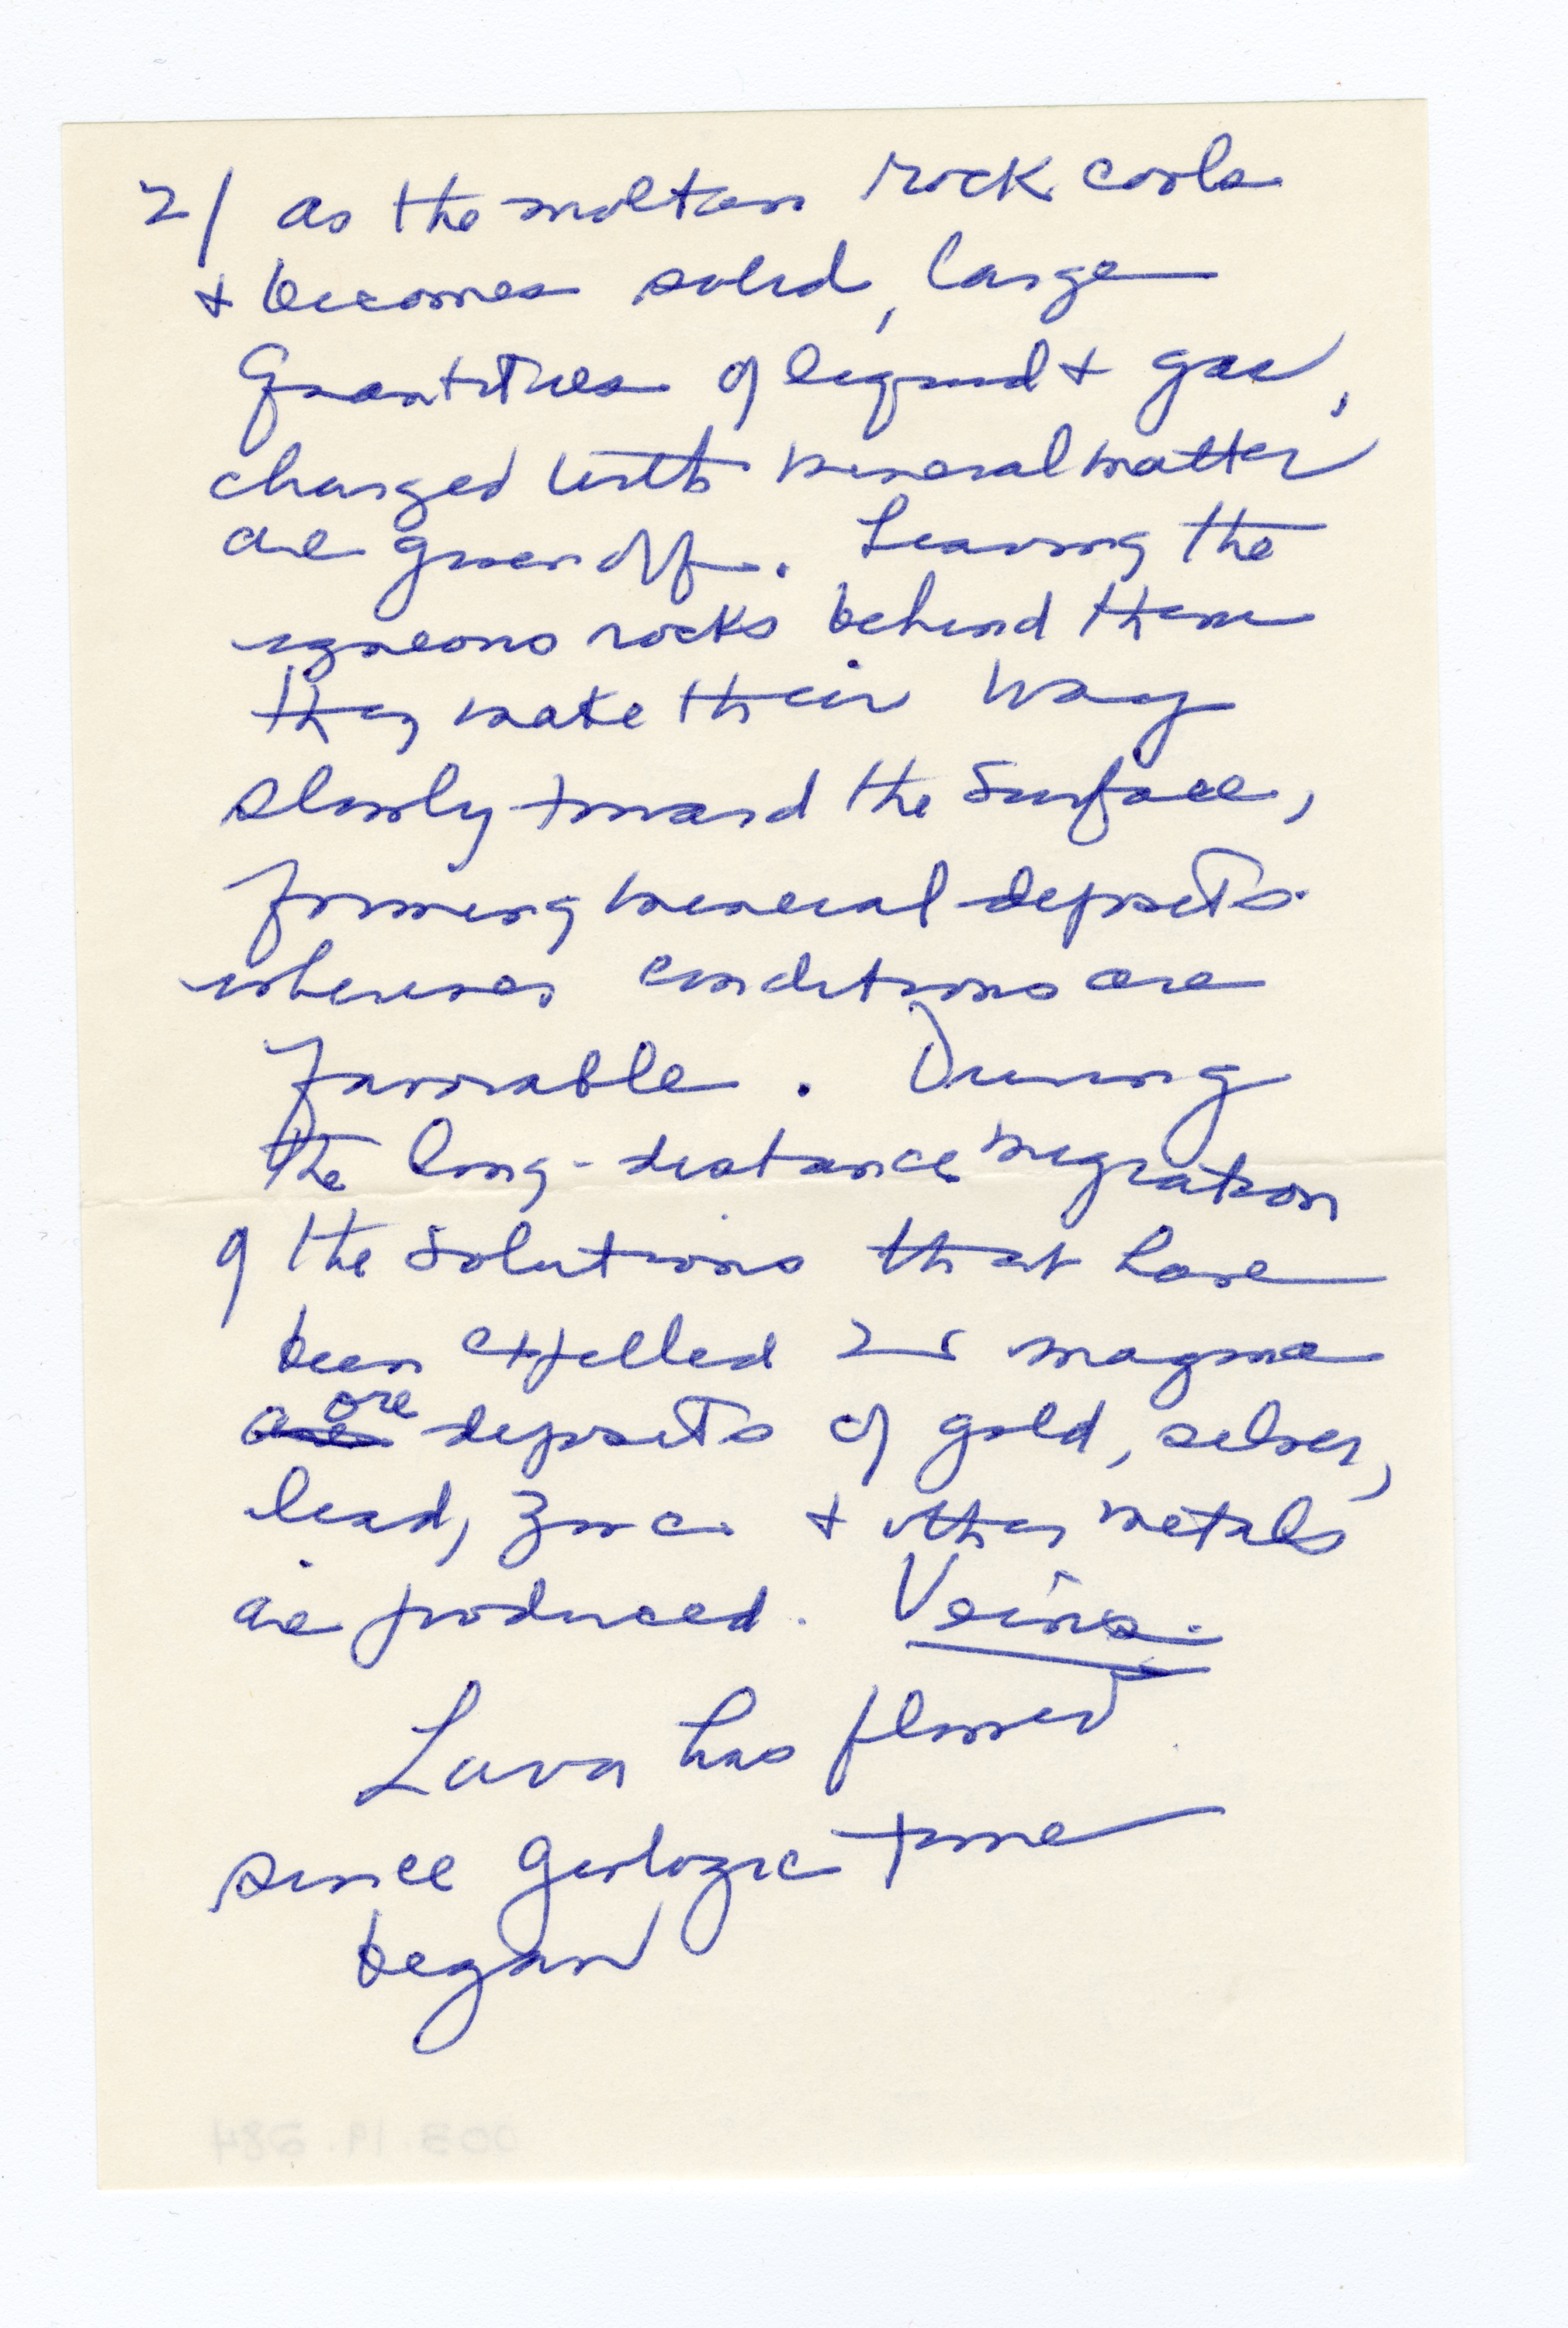 2/ as the molten rock cools
+ becomes solid, large
Quantities of liquid + gas,
charged with mineral matter
are given off. Leaving the
igneous rocks behind them
they make their way
slowly toward the Surface,
forming mineral deposits
wherever conditions are
favorable. During
the long-distance migration
of the Solutions that have
been expelled magma
ore deposits of gold, silver,
lead, zinc + other metals
are produced. Veins.
Lava has flowed
since geologic time
began